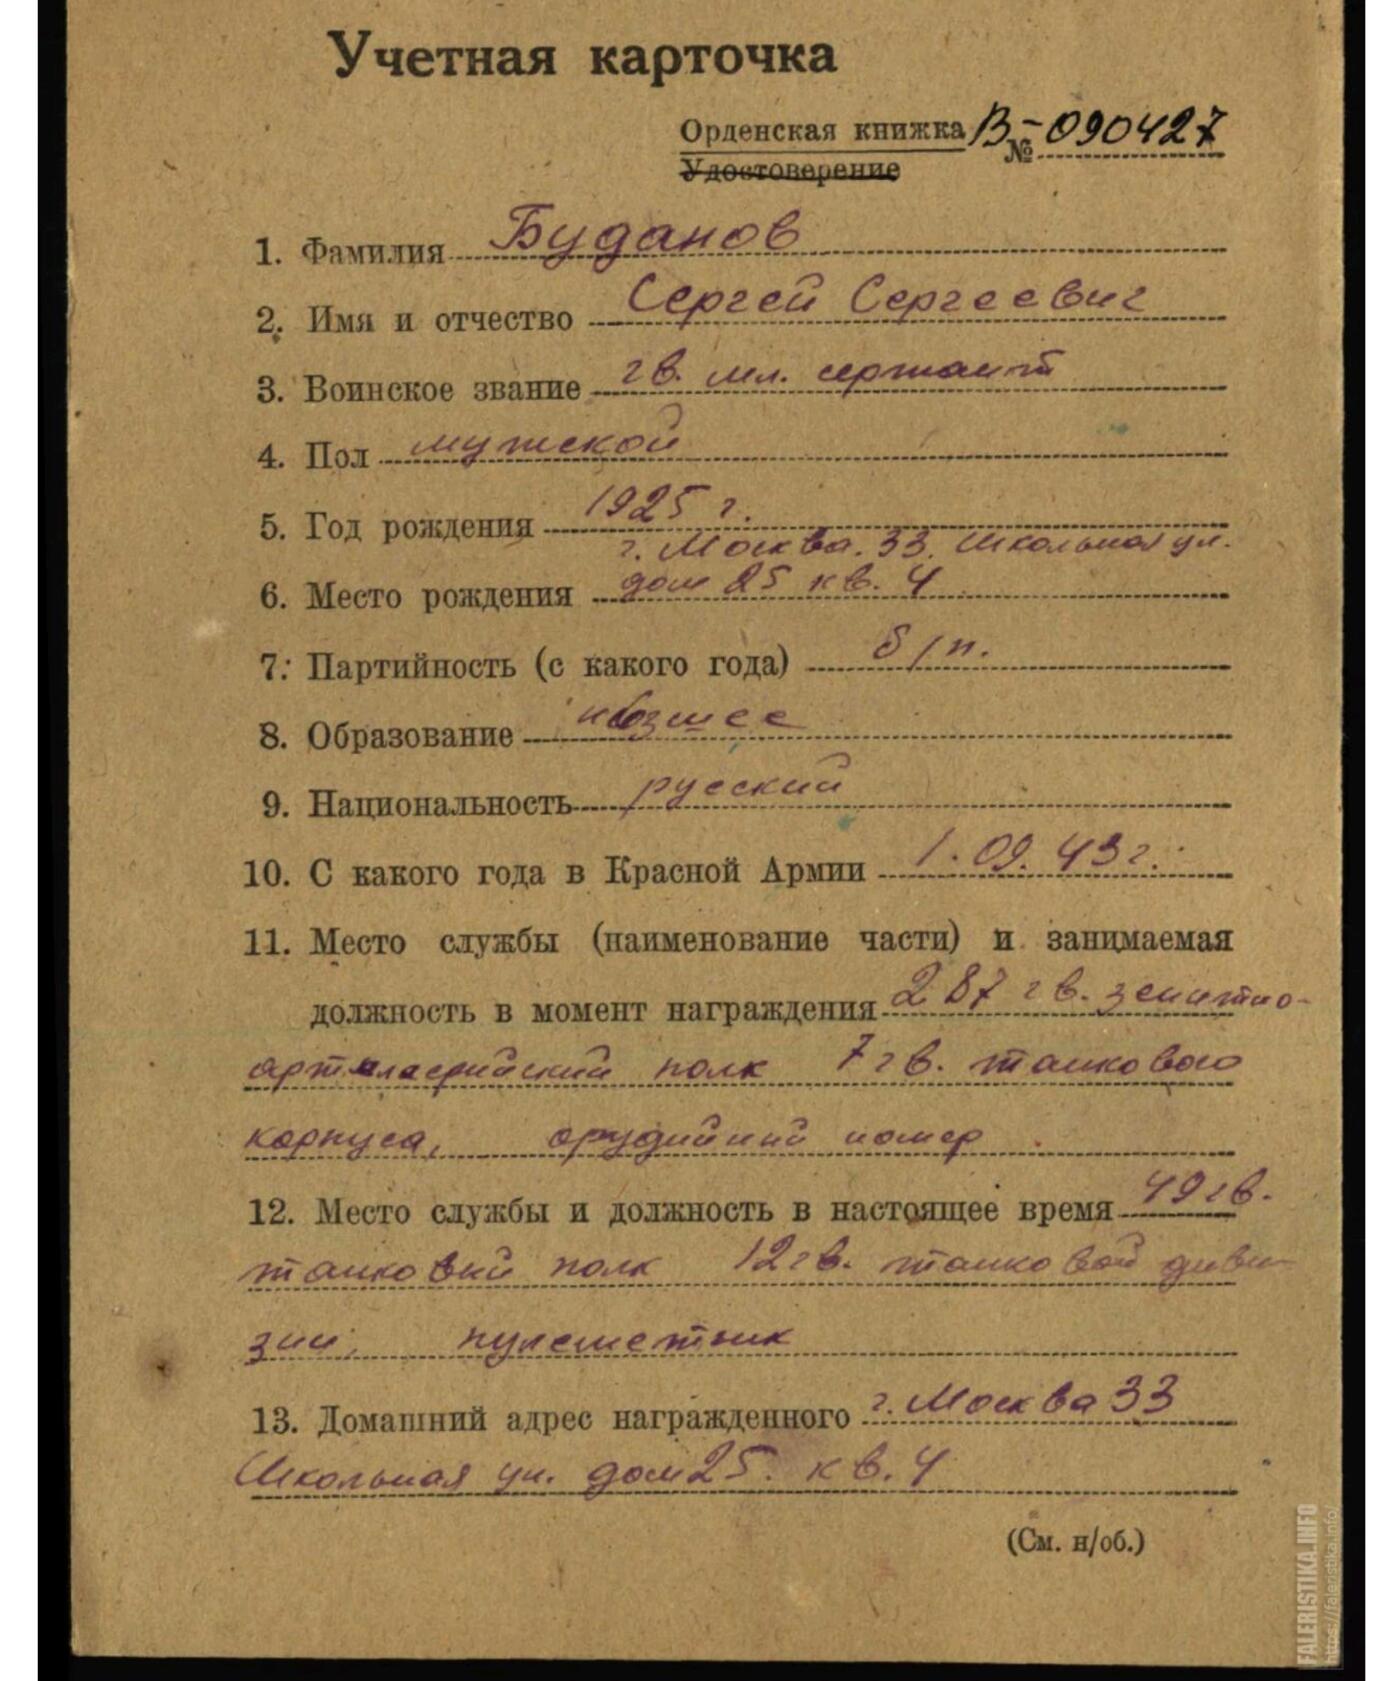 Учетная карточка
Орденская книжка В-№ 090427
Удостоверение
1. Фамилия Буданов
2. Имя и отчество Сергей Сергеевич
3. Воинское звание гв. мл. сержант
4. Пол мужской
5. Год рождения 1925 г.
г. Москва. 33. Школьная ул.
6. Место рождения дом 25 кв. 4
7. Партийность (с какого года) б/п.
8. Образование низшее
9. Национальность русский
10. С какого года в Красной Армии 1.09.43 г.
11. Место службы (наименование части) и занимаемая
должность в момент награждения 287 гв. зенитно-
артиллерийский полк 7 гв. танкового
корпуса, орудийный номер
12. Место службы и должность в настоящее время 49 гв.
танковый полк 12 гв. танковой диви-
зии, пулеметник
13. Домашний адрес награжденного г. Москва 33
Школьная ул. дом 25. кв. 4
(См. н/об.)
FALERISTIKA.INFO
https://faleristika.info/